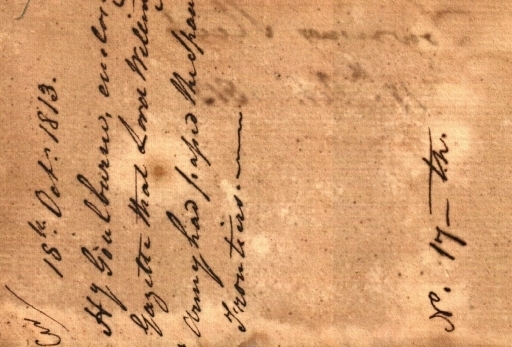 18th Octr. 1813.
Hy Goulburn, enclos
Gazette that Lord Wellin
Army had passed the Span
Frontiers.
No. 17 - th.